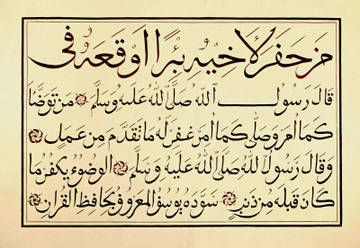 من حفر لأخيه بئرا اوقعه فى
قال رسول الله صلى الله عليه وسلم من توضأ
كما امر وصلى كما امر غفر له ما تقدم من عمل
وقال رسول الله صلى الله عليه وسلم الوضوء يكفر ما
كان قبله من ذنب سوده يوسف المعروف بحافظ القرآن